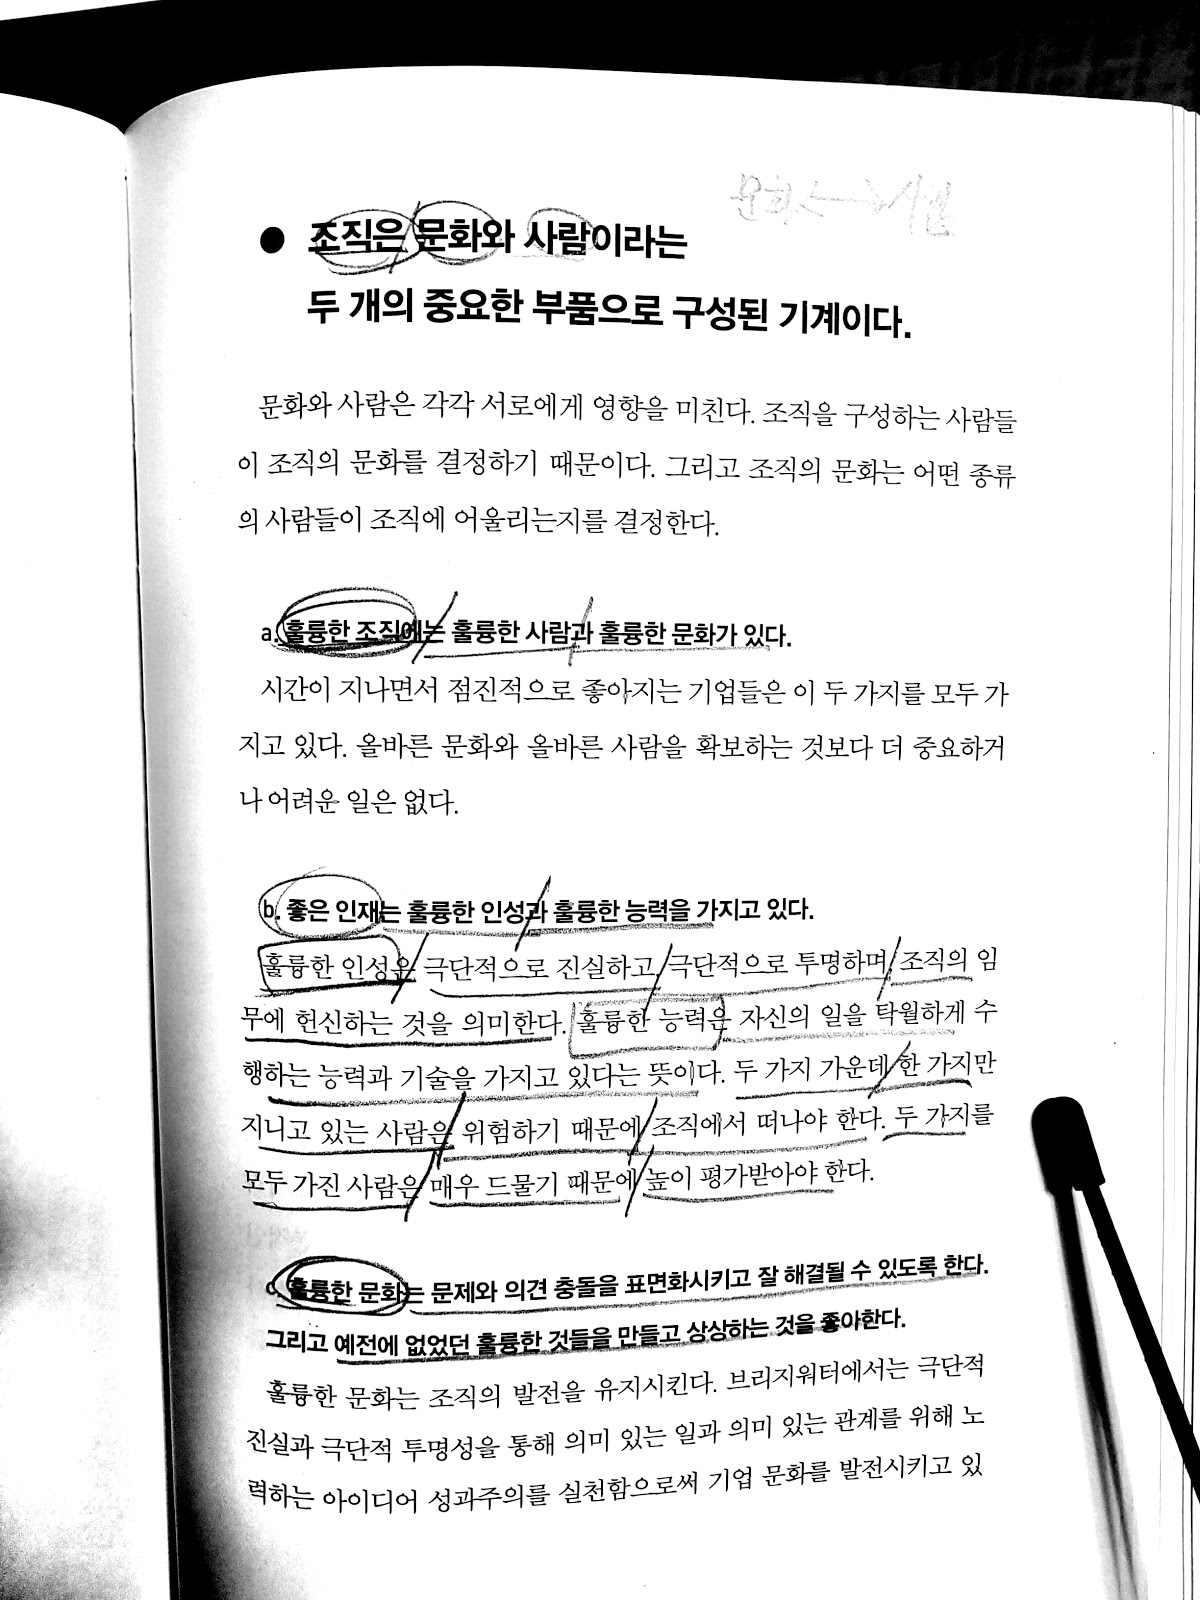 문화 <—> 사람
● 조직은 문화와 사람이라는
두 개의 중요한 부품으로 구성된 기계이다.
문화와 사람은 각각 서로에게 영향을 미친다. 조직을 구성하는 사람들
이 조직의 문화를 결정하기 때문이다. 그리고 조직의 문화는 어떤 종류
의 사람들이 조직에 어울리는지를 결정한다.
a. 훌륭한 조직에는 훌륭한 사람과 훌륭한 문화가 있다.
시간이 지나면서 점진적으로 좋아지는 기업들은 이 두 가지를 모두 가
지고 있다. 올바른 문화와 올바른 사람을 확보하는 것보다 더 중요하거
나 어려운 일은 없다.
b. 좋은 인재는 훌륭한 인성과 훌륭한 능력을 가지고 있다.
훌륭한 인성은 극단적으로 진실하고, 극단적으로 투명하며, 조직의 임
무에 헌신하는 것을 의미한다. 훌륭한 능력은 자신의 일을 탁월하게 수
행하는 능력과 기술을 가지고 있다는 뜻이다. 두 가지 가운데 한 가지만
지니고 있는 사람은 위험하기 때문에 조직에서 떠나야 한다. 두 가지를
모두 가진 사람은 매우 드물기 때문에 높이 평가받아야 한다.
c. 훌륭한 문화는 문제와 의견 충돌을 표면화시키고 잘 해결될 수 있도록 한다.
그리고 예전에 없었던 훌륭한 것들을 만들고 상상하는 것을 좋아한다.
훌륭한 문화는 조직의 발전을 유지시킨다. 브리지워터에서는 극단적
진실과 극단적 투명성을 통해 의미 있는 일과 의미 있는 관계를 위해 노
력하는 아이디어 성과주의를 실천함으로써 기업 문화를 발전시키고 있